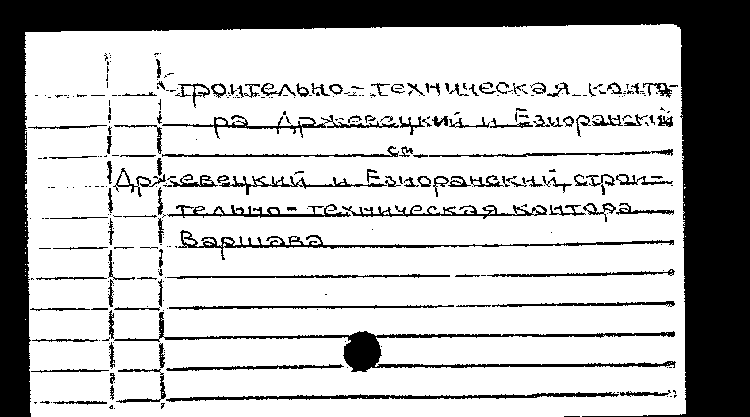 Строительно-техническая конто-
ра Држевецкий и Езиоранский
см.
Држевецкий и Езиоранский, строи-
тельно-техническая контора
Варшава